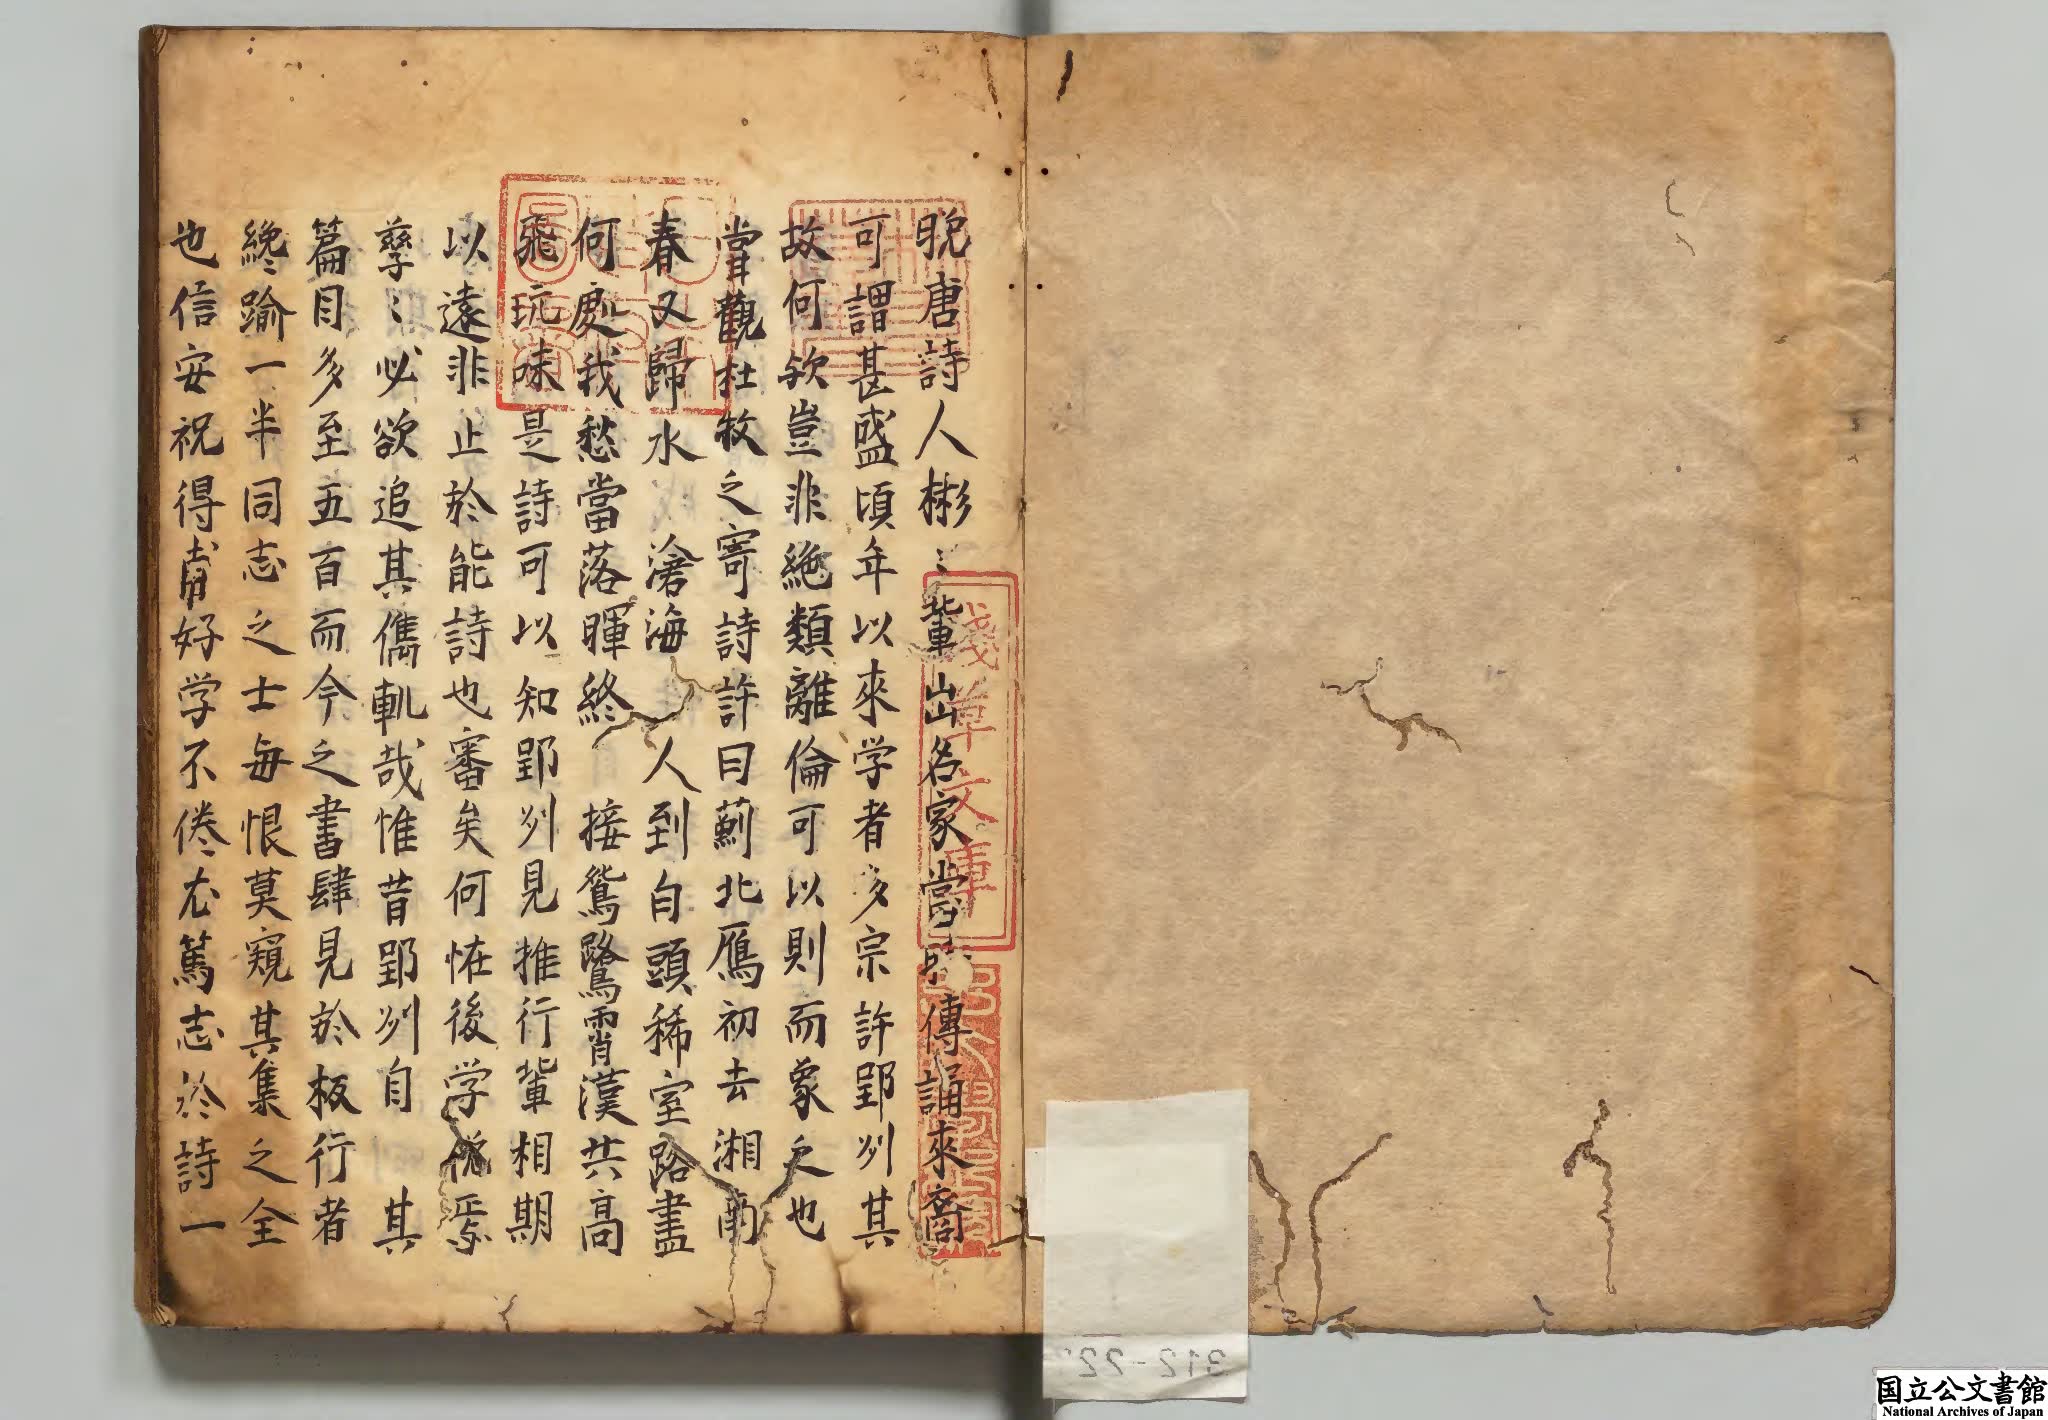 晩唐詩人彬〻輩出名家當時傳誦來裔
可謂甚盛頃年以來学者多宗許郢州其
故何欤豈非絶類離倫可以則而象之也
甞觀杜牧之寄詩許曰薊北鴈初去湘南
春又歸水 滄海 人到白頭稀室路盡
何處我愁當落暉終 接鴛鷺霄漢共高
飛玩味是詩可以知郢州見推行輩相期
以遠非止於能詩也審矣何恠後学悅焉
孳〻必欲追其儁軌哉惟昔郢州自 其
篇目多至五百而今之書肆見於板行者
纔踰一半同志之士每恨莫窺其集之全
也信安祝得甫好学不倦尤篤志於詩一
淺草文庫
312-22
国立公文書館
National Archives of Japan